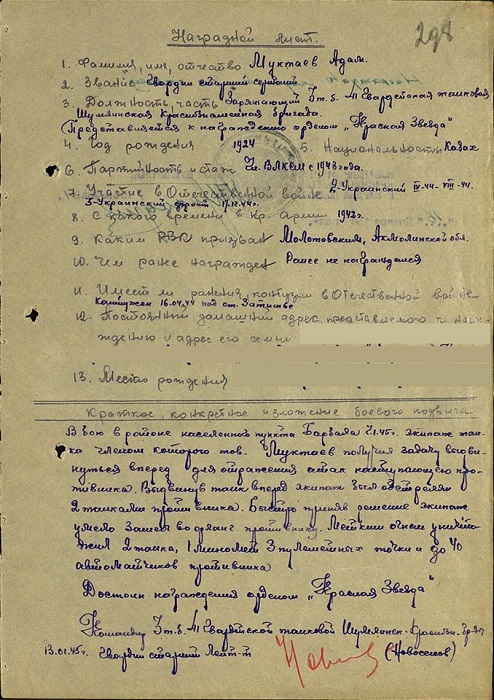 298
Наградной лист.
1. Фамилия, имя, отчество Муктаев Адам.
2. Звание Гвардии старший сержант
3. Должность, часть Заряжающий 3 т.б. 41 Гвардейская танковая
Шумлинская Краснознаменная бригада.
(Представляется к награждению орденом „Красная Звезда"
4. Год рождения 1924 5. Национальность Казах
6. Партийность и стаж Чл. ВЛКСМ с 1943 года.
7. Участие в Отечественной войне 2-Украинский IV-44. VIII-44.
3-Украинский фронт 17.12.44г.
8. С какого времени в Кр. Армии 1942г.
9. Каким РВК призван Молотовским, Акмолинской обл.
10. Чем ранее награжден Ранее не награждался
11. Имеет ли ранения, контузии в Отечественной войне
Контужен 16.04.44 под ст. Затишье
12. Постоянный домашний адрес, представляемого к наг-
ждению и адрес его семьи
13. Место рождения
Краткое, конкретное изложение боевого подвига
В бою в районе населенного пункта 7.1.45г. экипаж тан-
ка членом которого тов. Муктаев получил задачу выдви-
нуться вперед для отражения атак наступающего про-
тивника. Выдвинув танк вперед экипаж был обстрелян
2 танками противника. Быстро приняв решение экипаж
умело зашел во фланг противнику. Метким огнем уничто-
жил 2 танка, 1 миномет 3 пулеметных точки и до 40
автоматчиков противника
Достоин награждения орденом „Красная Звезда"
Командир 3 т.б. 41 Гвардейской танковой Шумлинск. Краснозн. бр-ды
13.01.45г. Гвардии старший Лейт-т (Новоселов)